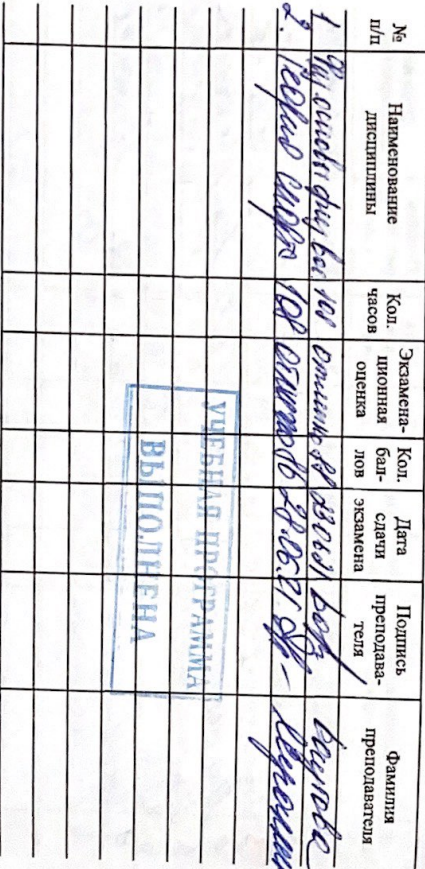 № п/п
Наименование дисциплины
Кол. часов
Экзамена-
ционная
оценка
Кол. бал-
лов
Дата сдачи экзамена
Подпись преподава-
теля
Фамилия преподавателя
1. основы 108 отлично 88 23.06.21
2. Теория спорта 108 отлично 86 28.06.21.
УЧЕБНАЯ ПРОГРАММА
ВЫПОЛНЕНА